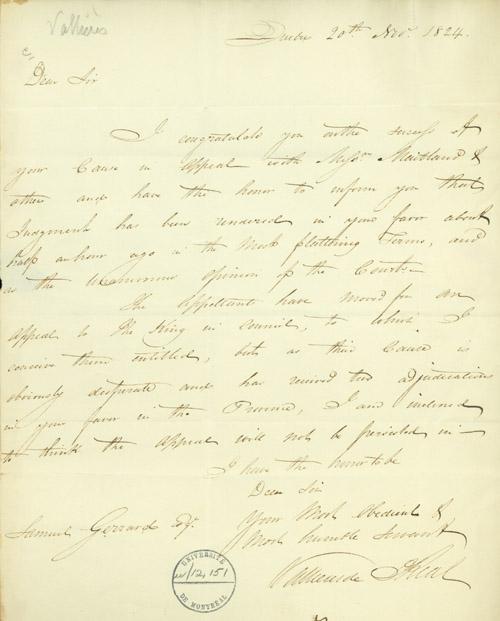 Vallières
Quebec 20th Novr. 1824.
Dear Sir
I congratulate you on the success of
your Cause in Appeal with Messrs Maitland &
others and have the honor to inform you that
Judgment has been rendered in your favor about
half an hour ago in the most flattering Terms, and
as the unanimous opinion of the Court.
The Appellants have moved for an
appeal to the King in council, to which I
conceive them entitled, but as their Cause is
obviously desperate and has received two adjudications
in your favor in the Province, I am inclined
to think the appeal will not be persisted in
I have the honor to be
Dear Sir
Your Most obedient &
Most humble Servant
Samuel Gerrard Esqr.
Vallieres de St Real
UNIVERSITÉ
DE MONTRÉAL